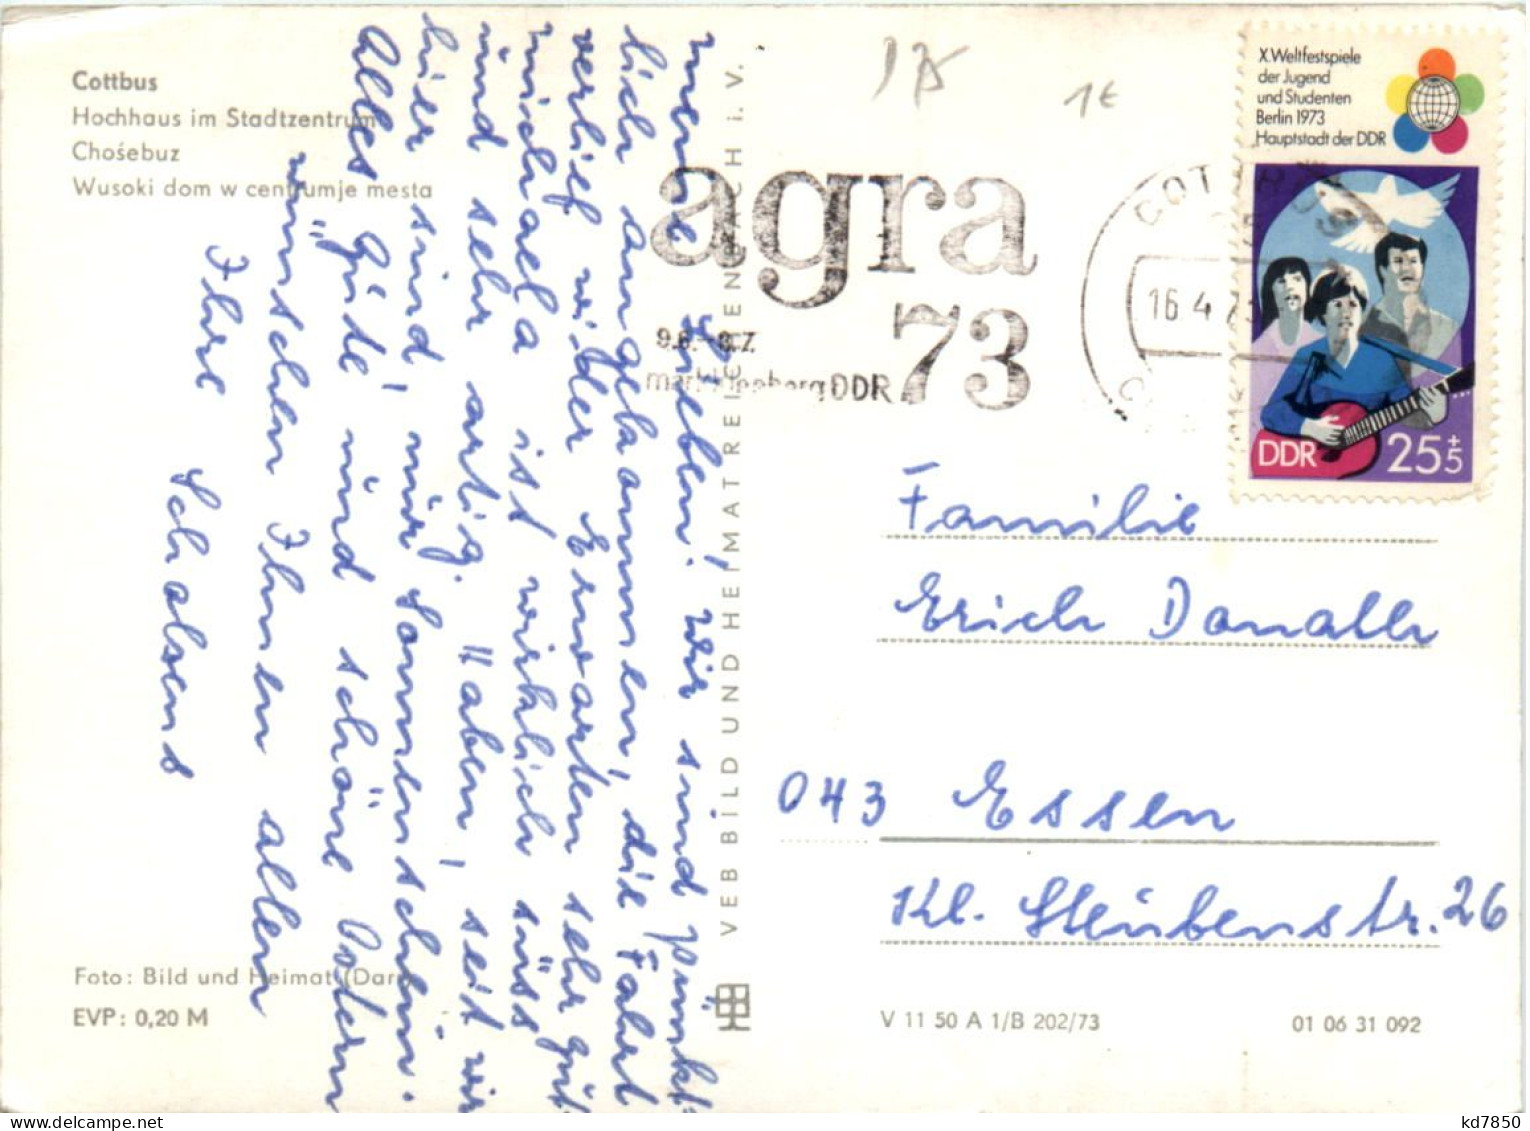 Cottbus
Hochhaus im Stadtzentrum
Chośebuz
Wusoki dom w centrumje mesta
Meine Lieben! Wir sind pünkt-
lich angekommen, die Fahrt
verlief wider Erwarten sehr gut
Michaela ist wirklich süss
und sehr artig. Haben, seit wir
hier sind, nur Sonnenschein.
Alles Gute und schöne Ostern
wünschen Ihnen allen
Ihre
Foto: Bild und Heimat (Darr)
EVP: 0,20 M
VEB BILD UND HEIMAT REICHENBACH i. V.
1€
agra
73
9.6.-8.7.
markkleeberg DDR
COTTBUS
16.4.73
X. Weltfestspiele
der Jugend
und Studenten
Berlin 1973
Hauptstadt der DDR
DDR 25+5
Familie
Erich Donath
043 Essen
Kl. Steubenstr. 26
V 11 50 A 1/B 202/73
01 06 31 092
kd7850